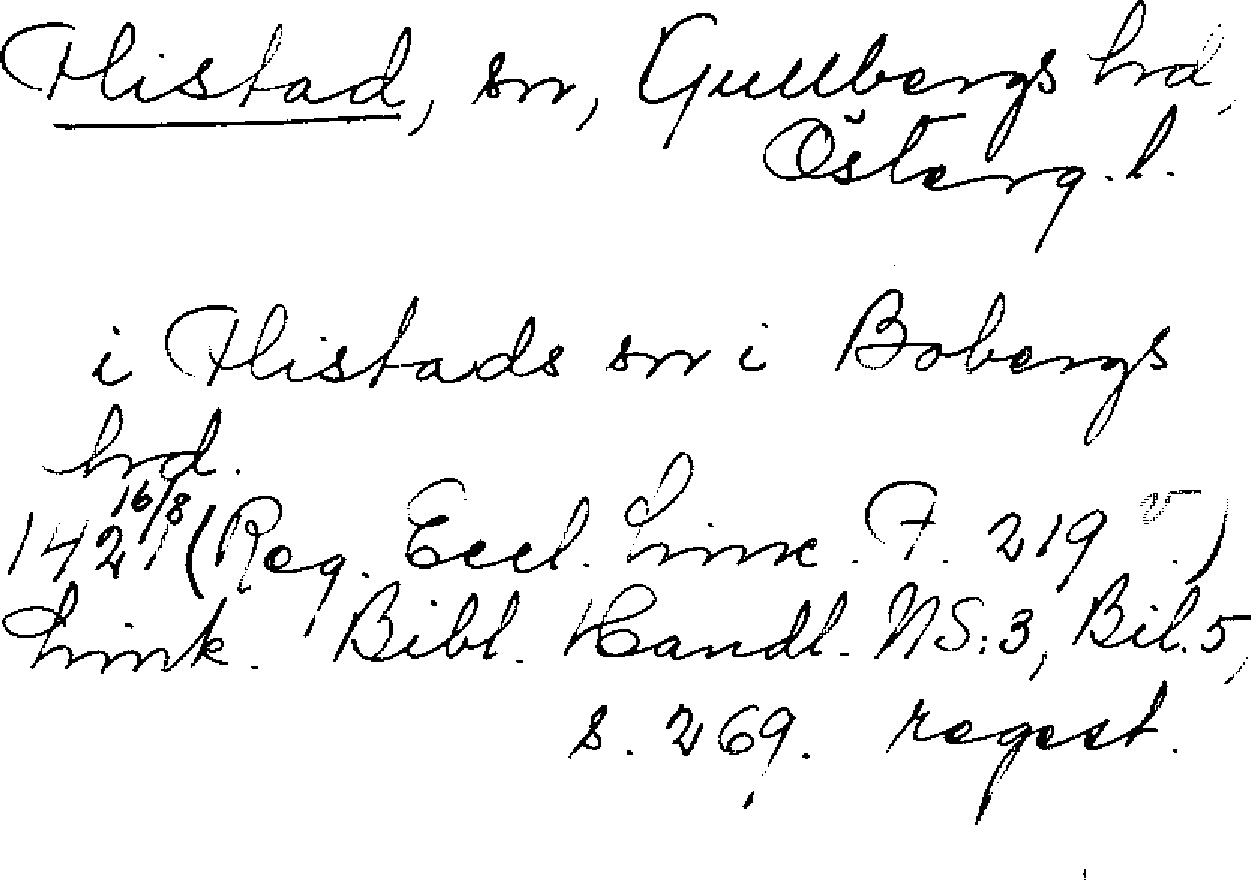 Flistad, sn, Gullbergs hrd,
Österg. l.
i Flistads sn i Bobergs
hrd.
16/8
1421 (Reg. Eccl. Linc. F. 219 v.)
Link. Bibl. Handl. NS:3, Bil. 5,
s. 269. regest.